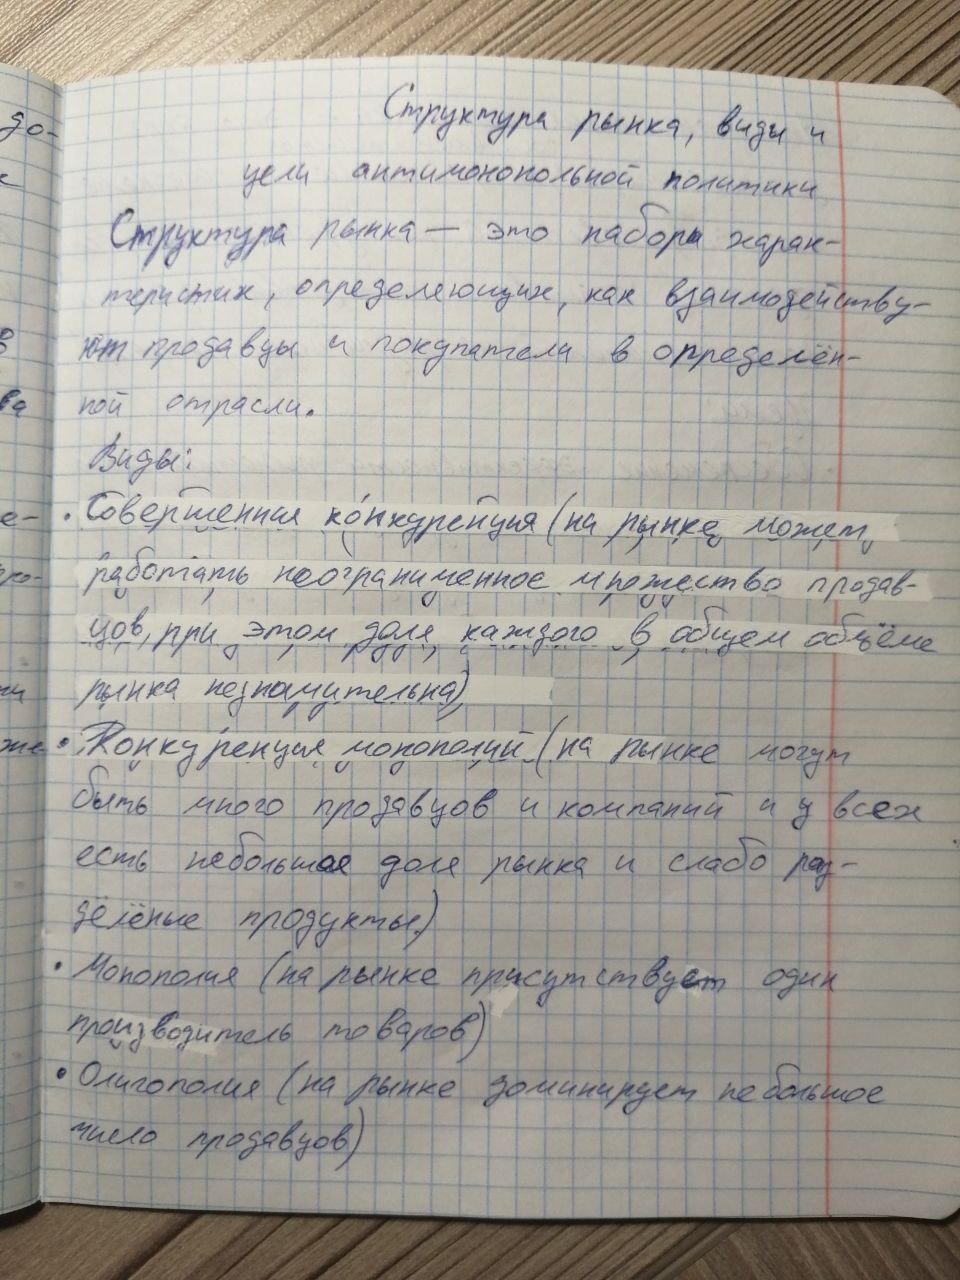 Структура рынка, виды и
цели антимонопольной политики
Структура рынка — это набор харак-
теристик, определяющих, как взаимодейству-
ют продавцы и покупатели в определён-
ной отрасли.
Виды:
• Совершенная конкуренция (на рынке может
работать неограниченное множество продав-
цов, при этом доля каждого в общем объёме
рынка незначительна)
• Конкуренция монополий (на рынке могут
быть много продавцов и компаний и у всех
есть небольшая доля рынка и слабо раз-
делёные продукты)
• Монополия (на рынке присутствует один
производитель товаров)
• Олигополия (на рынке доминирует небольшое
число продавцов)
до-
ва
е-
же